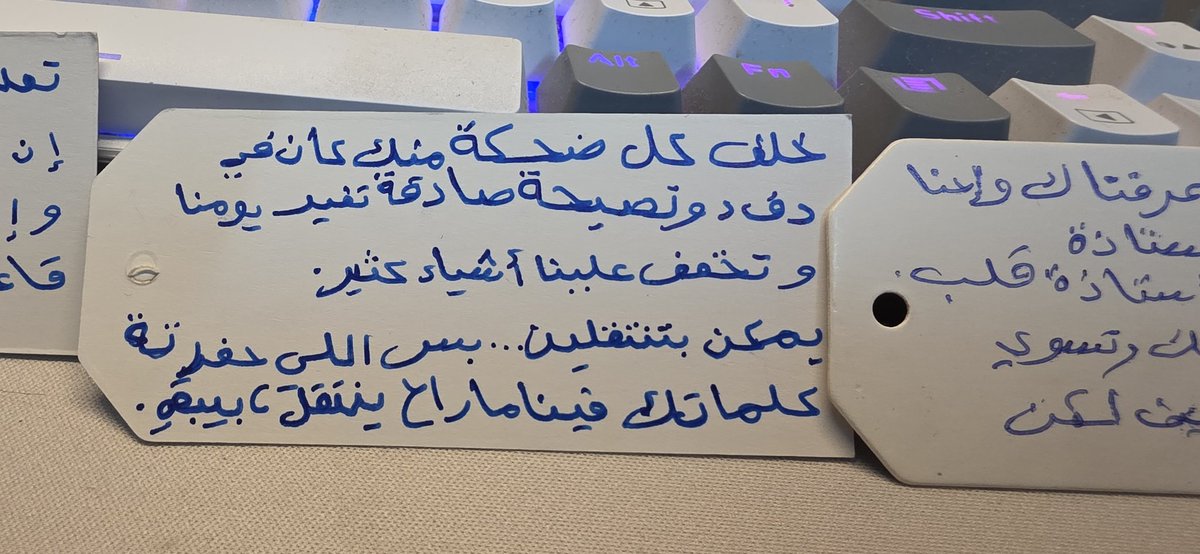 Shift
Alt
Fn
تعد
إن
و إ
قاء
خلف كل ضحكة منك كان في
دفء ونصيحة صادقة تفيد يومنا
و تخفف علينا أشياء كثير.
يمكن بتنتقلين... بس اللي حفرتة
كلماتك فينا ما راح ينتقل، بيبقى.
عرفناك وإحنا
ستاذة
ستاذة قلب.
ك وتسوي
لكن